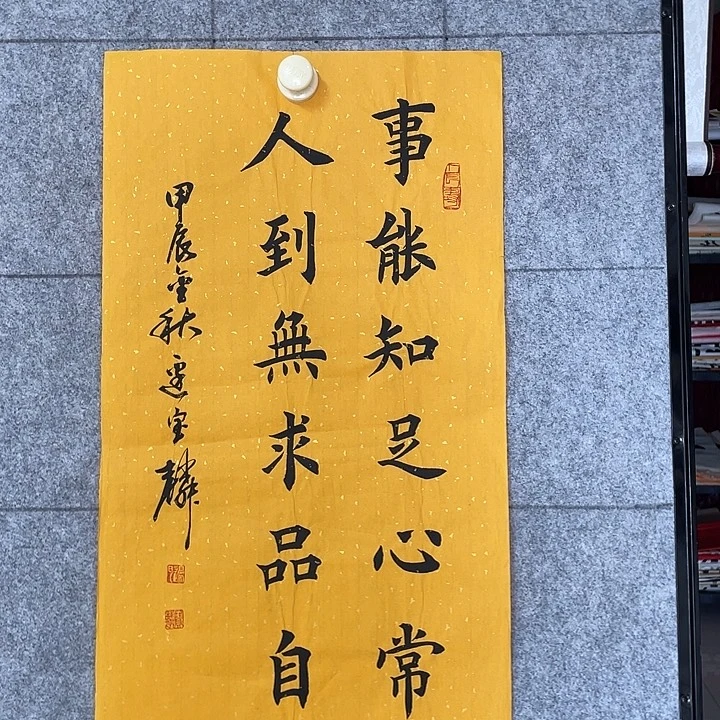 事能知足心常
人到無求品自
甲辰金秋 宝麟